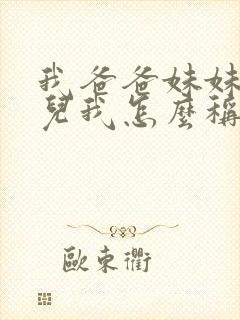 我爸爸妹妹
兒我怎麼稱
歐東衢